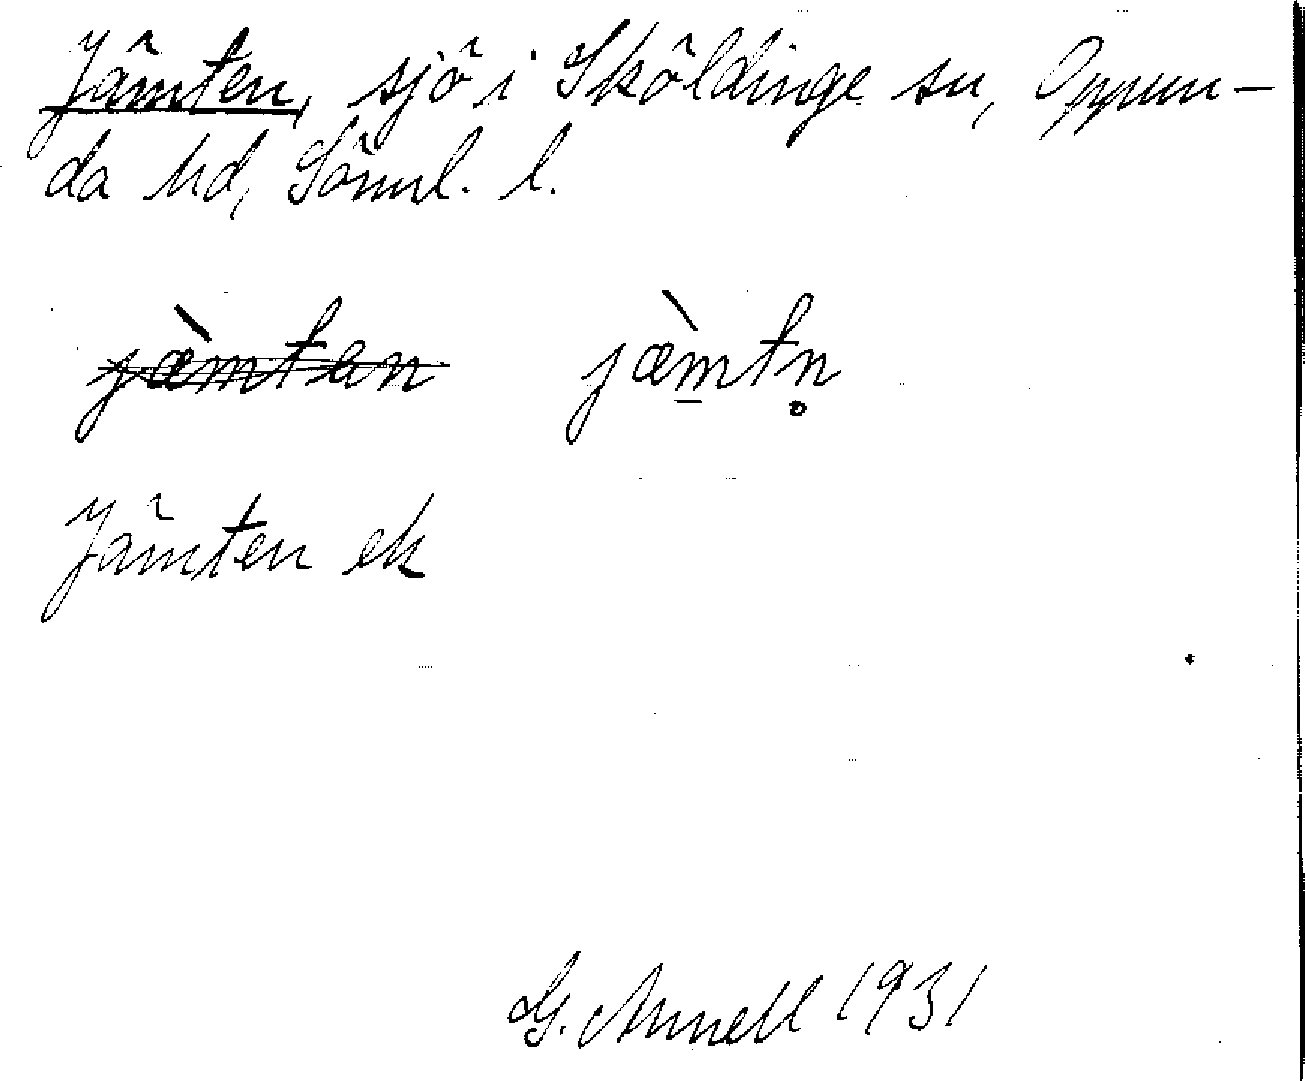 Jämten, sjö i Sköldinge sn, Oppun-
da hd, Söml. l.
jæ̀mten jæ̀m̠tn̥
Jämten ek
G. Annell 1931